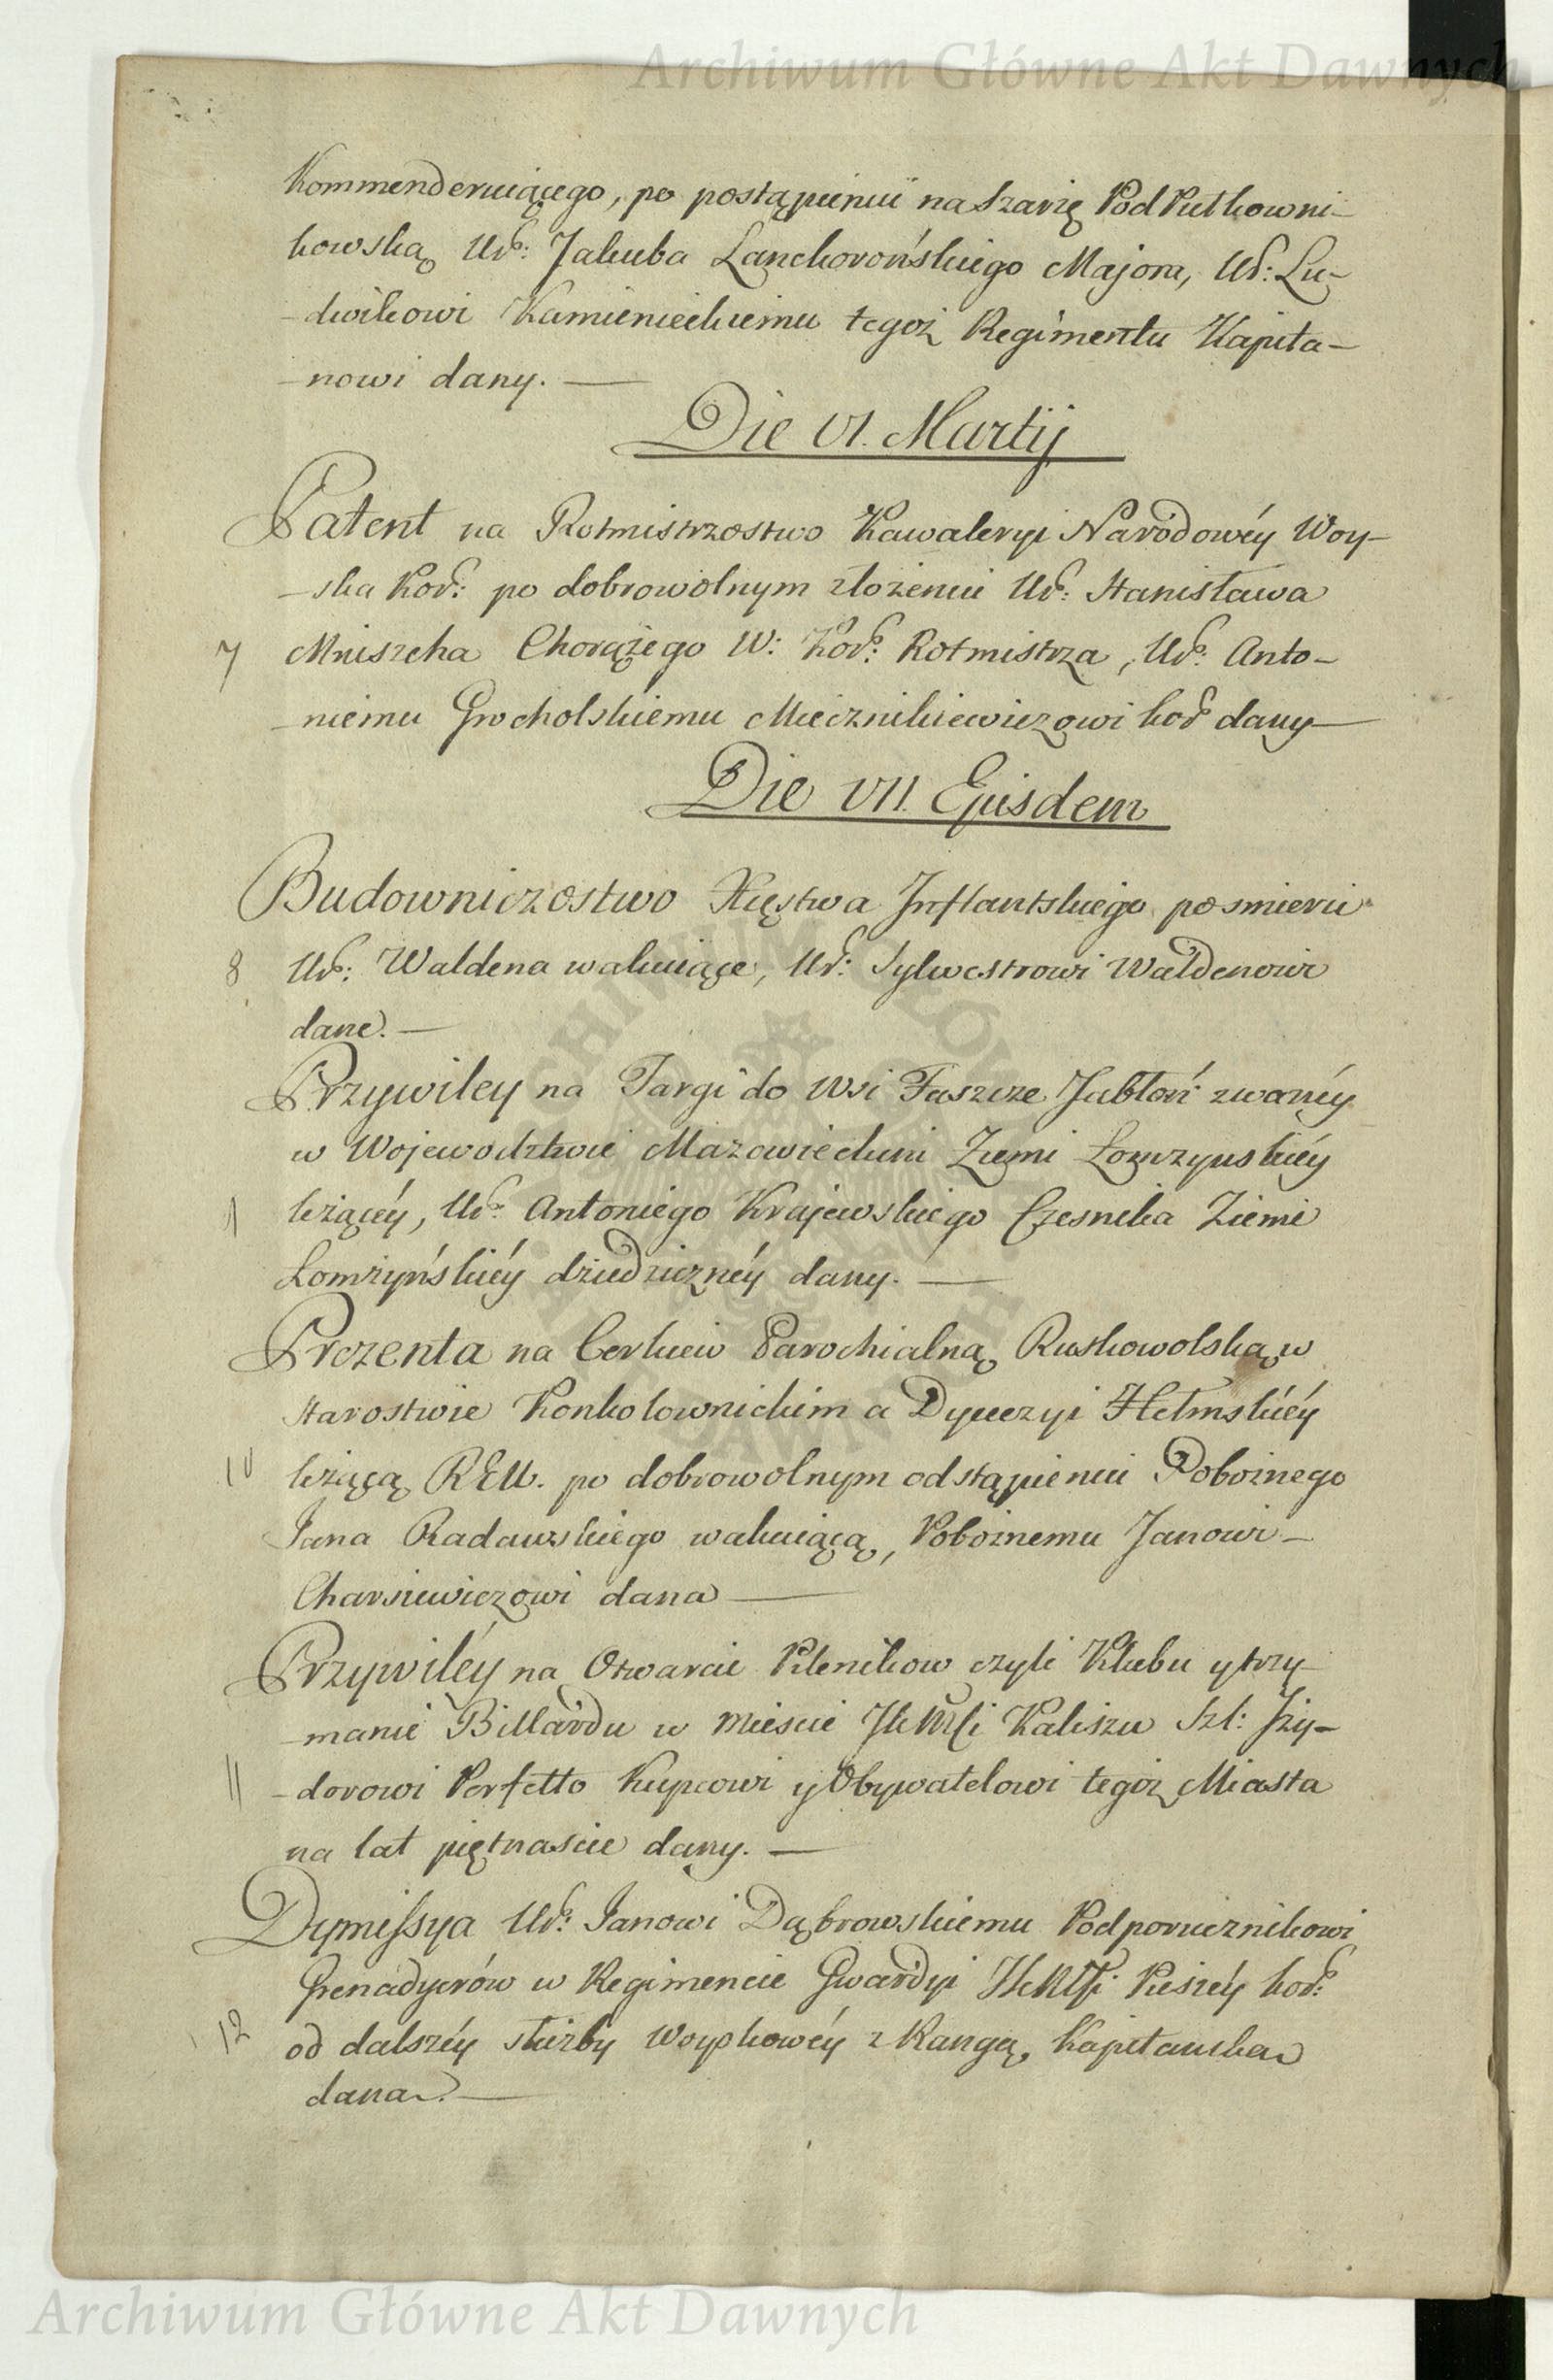 Archiwum Główne Akt Dawnych
Kommenderuiącego, po postąpieniu na Szarżę PodPułkowni-
kowską Ur: Jakuba Lanckorońskiego Majora, Ur: Lu-
-dwikowi Kamienieckiemu tegoż Regimentu Kapita-
-nowi dany. —
Die VI. Martij
Patent na Rotmistrzostwo Kawaleryi Narodowéy Woy-
-ska Kor: po dobrowolnym złożeniu Ur: Stanisława
7 Mniszcha Chorążego W: Kor: Rotmistrza, Ur: Anto-
-niemu Grocholskiemu Miecznikiewiczowi kor dany —
Die VII. Ejusdem
Budowniczostwo Xięstwa Inflantskiego po śmierci
8 Ur: Waldena wakuiące, Ur: Sylwestrowi Waldenowi
dane. —
Przywiley na Targi do Wsi Faszcze Jabłoń zwanéy
w Wojewodztwie Mazowieckim Ziemi Łomżyńskiéy
leżącéy, Ur: Antoniego Krajewskiego Cześnika Ziemi
Łomżyńskiéy dziedzicznéy dany. —
Prezenta na Cerkiew Parochialną Ruskowolską w
Starostwie Konkolownickim a Dyecezyi Hełmskiéy
10 leżącą R.G.U. po dobrowolnym odstąpieniu Pobożnego
Jana Radawskiego wakuiącą, Pobożnemu Janowi -
Charsiewiczowi dana —
Przywiléy na Otwarcie Piknikow czyli Klubu y trzy-
-manie Billardu w Mieście JKMci Kaliszu Szl: Izy-
11 -dorowi Perfetto Kupcowi y Obywatelowi tegoż Miasta
na lat piętnaście dany. —
Dymissya Ur: Janowi Dąbrowskiemu Podporucznikowi
Grenadyerów w Regimencie Gwardyi JKMci Pieszéy kor:
12 od dalszéy służby Woyskowéy z Rangą Kapitanska
dana. —
ARCHIWUM GŁÓWNE AKT DAWNYCH
Archiwum Główne Akt Dawnych